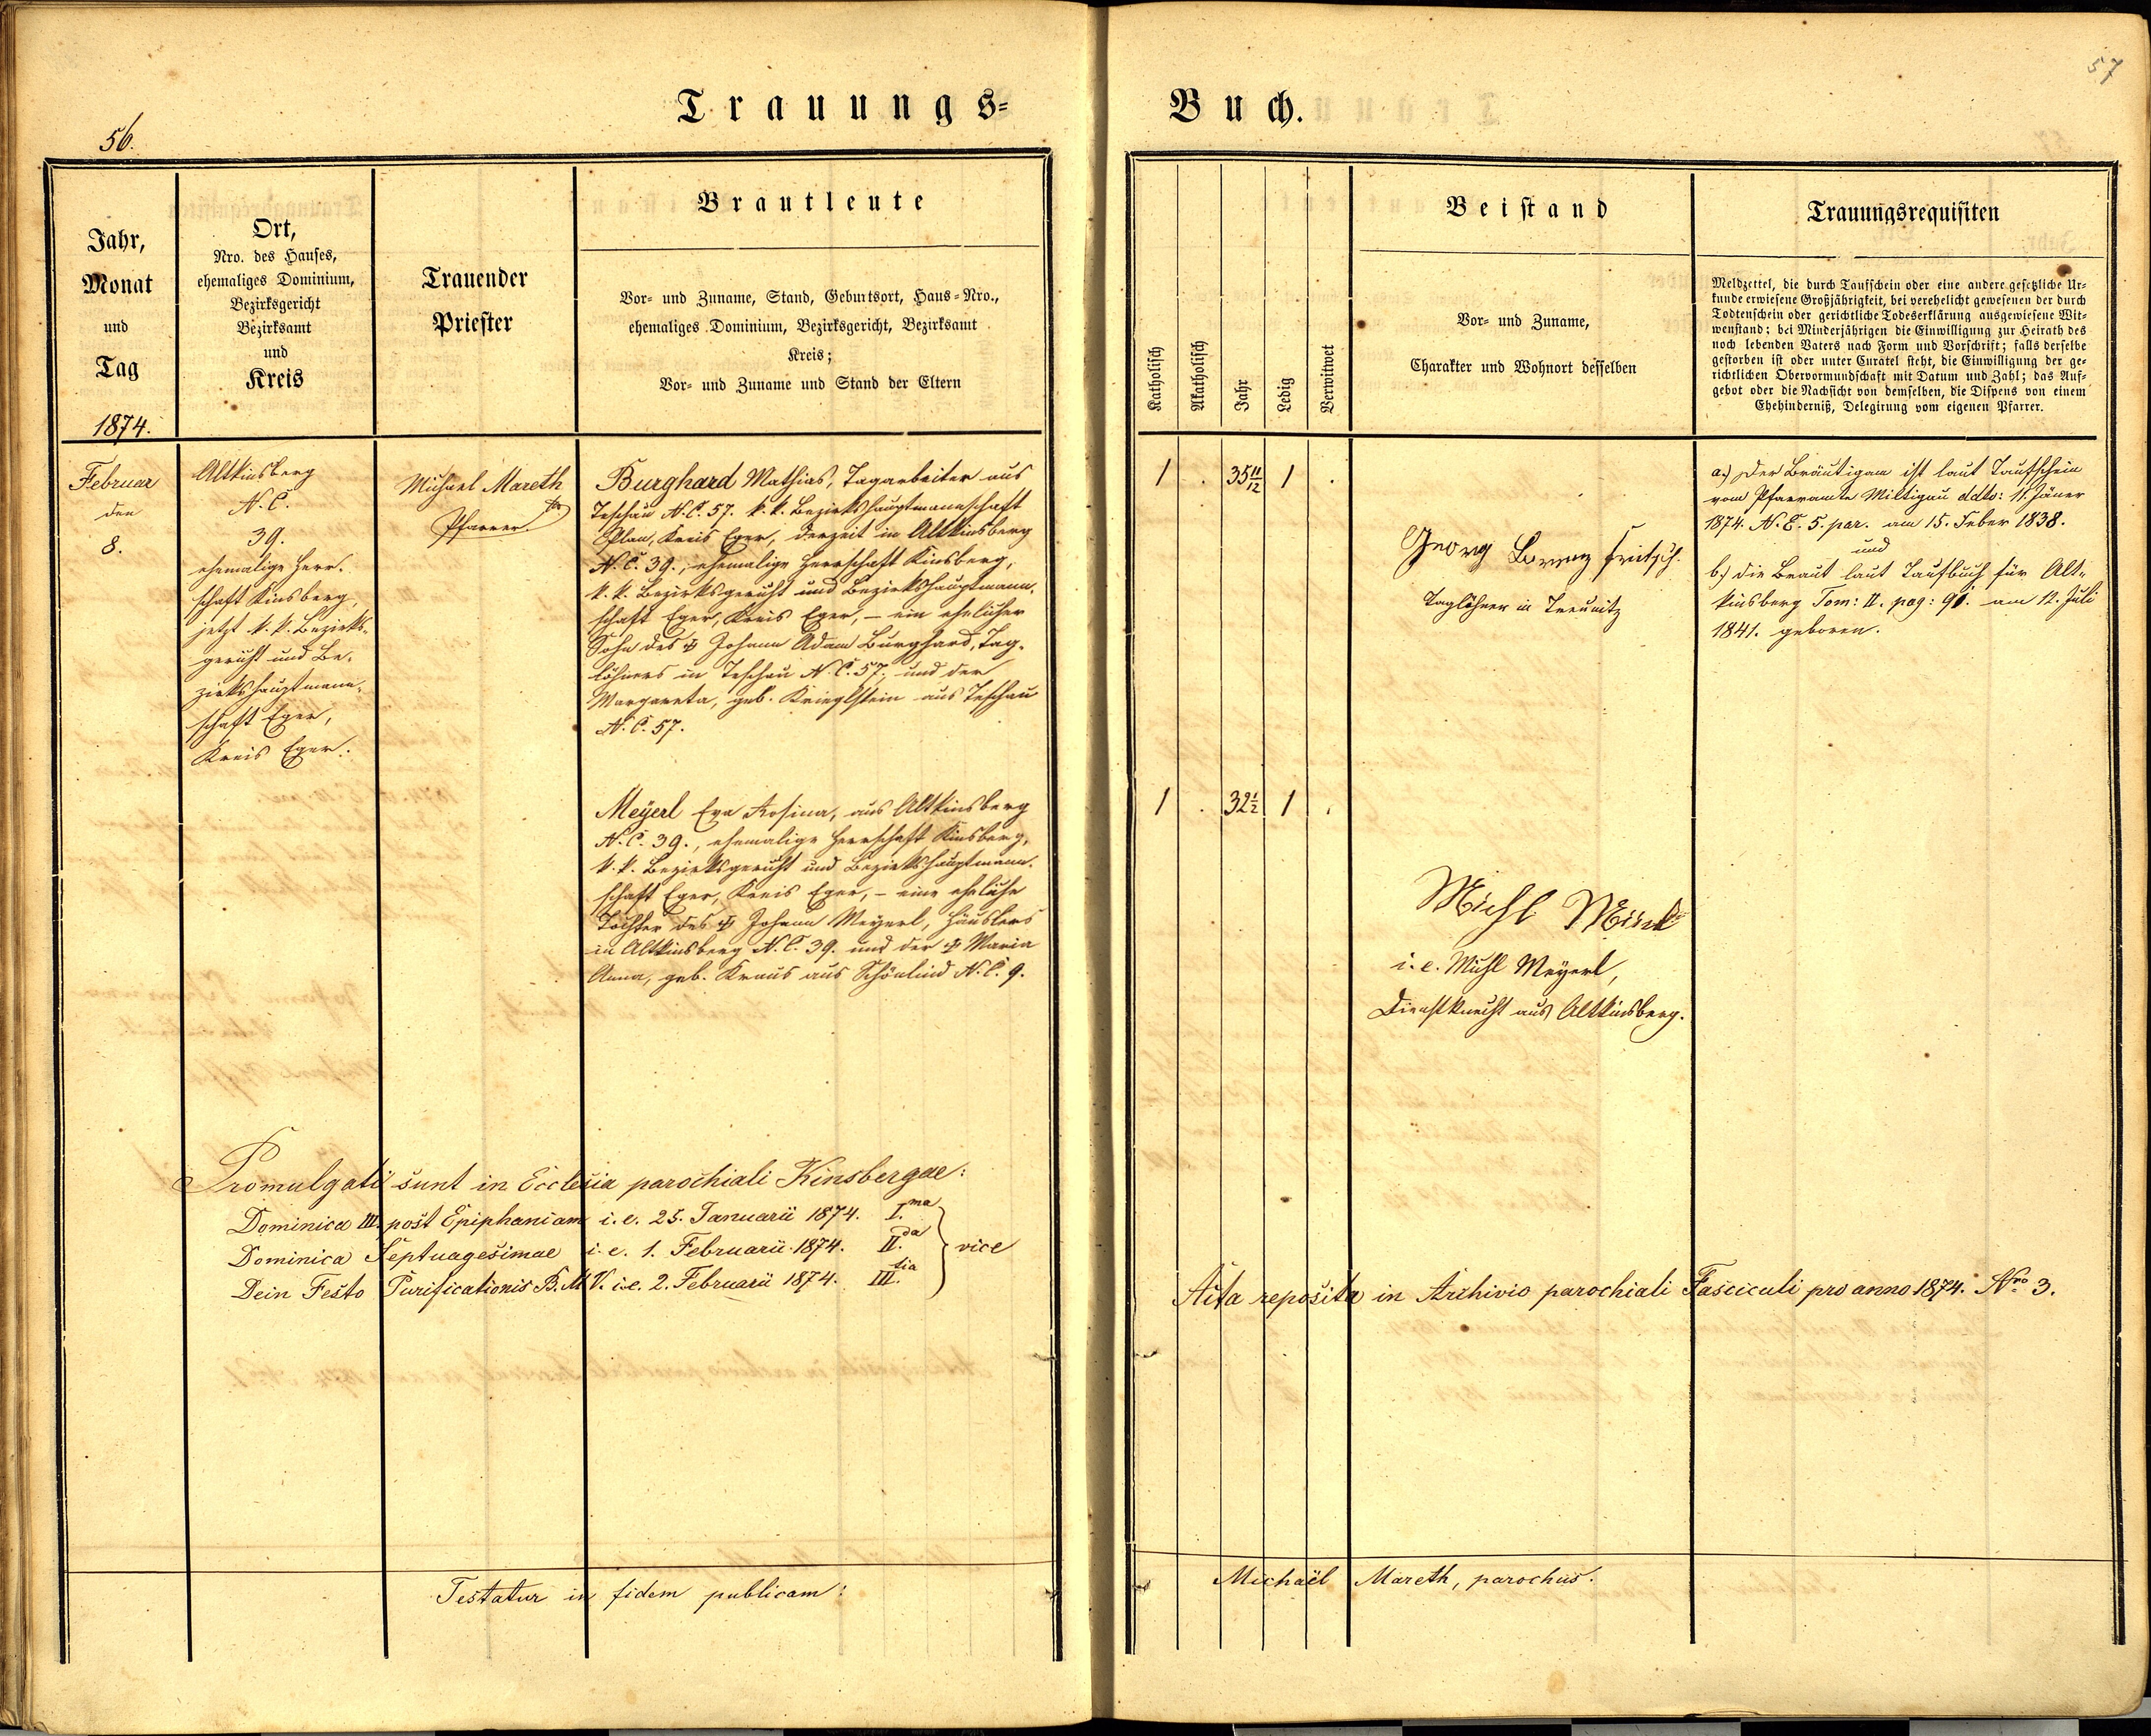 57
Trauungs=
Buch.
56.
Jahr,
Monat
und
Tag
1874.
Ort,
Nro. des Hauses,
ehemaliges Dominium,
Bezirksgericht
Bezirksamt
und
Kreis
Trauender
Priester
Brautleute
Vor- und Zuname, Stand, Geburtsort, Haus-Nro.,
ehemaliges Dominium, Bezirksgericht, Bezirksamt
Kreis;
Vor- und Zuname und Stand der Eltern
Katholisch
Akatholisch
Jahr
Ledig
Verwitwet
Beistand
Vor- und Zuname,
Charakter und Wohnort desselben
Trauungsrequisiten
Meldzettel, die durch Taufschein oder eine andere gesetzliche Ur-
kunde erwiesene Großjährigkeit, bei verehelicht gewesenen der durch
Todtenschein oder gerichtliche Todeserklärung ausgewiesene Wit-
wenstand; bei Minderjährigen die Einwilligung zur Heirath des
noch lebenden Vaters nach Form und Vorschrift; falls derselbe
gestorben ist oder unter Curatel steht, die Einwilligung der ge-
richtlichen Obervormundschaft mit Datum und Zahl; das Auf-
gebot oder die Nachsicht von demselben, die Dispens von einem
Ehehinderniß, Delegirung vom eigenen Pfarrer.
Februar
den
8.
Altkinsberg
N. C.
39.
ehemalige Herr-
schaft Kinsberg,
jetzt k. k. Bezirks-
gericht und Be-
zirkshauptmann-
schaft Eger,
Kreis Eger.
Michael Mareth
Pfarrer
Burghard Mathias, Tagarbeiter aus
Teschau N. C. 57. k. k. Bezirkshauptmannschaft
Plan, Kreis Eger, derzeit in Altkinsberg
N. C. 39., ehemalige Herrschaft Kinsberg,
k. k. Bezirksgericht und Bezirkshauptmann-
schaft Eger, Kreis Eger, – ein ehelicher
Sohn des † Johann Adam Burghard, Tag-
löhners in Teschau N. C. 57., und der
Margareta, geb. Krieglstein aus Teschau
N. C. 57.
1 . 35 11/12 1 .
Georg Lorenz Fritsch.
Taglöhner in Treunitz
a.) Der Bräutigam ist laut Taufschein
vom Pfarramte Miltigau ddto: 11. Jäner
1874. N. E. 5. par. am 15. Feber 1838.
und
b.) die Braut laut Taufbuch für Alt-
kinsberg Tom: II. pag: 91. am 12. Juli
1841. geboren.
Meÿerl Eva Rosina, aus Altkinsberg
N. C. 39., ehemalige Herrschaft Kinsberg,
k. k. Bezirksgericht und Bezirkshauptmann-
schaft Eger, Kreis Eger, – eine eheliche
Tochter des † Johann Meyerl, Häuslers
in Altkinsberg N. C. 39. und der † Maria
Anna, geb. Kraus aus Schönlind N. C. 9.
1 . 32 1/2 1 .
Michl
i. e. Michl Meÿerl,
Dienstknecht aus Altkinsberg.
Promulgati sunt in Ecclesia parochiali Kinsbergae:
Dominica III. post Epiphaniam i. e. 25. Januarii 1874. I.ma
Dominica Septuagesimae i. e. 1. Februarii 1874. II.da
Dein Festo Purificationis B. M. V. i. e. 2. Februarii 1874. III.tia
vice
Acta reposita in Archivio parochiali Fasciculi pro anno 1874. Nro 3.
Testatur in fidem publicam:
Michaël Mareth, parochus.